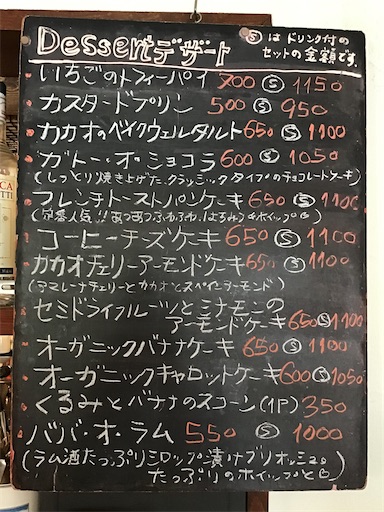 Dessert デザート
Ⓢ は ドリンク付の
セットの金額です。
いちごのトフィーパイ 700 Ⓢ 1150
カスタードプリン 500 Ⓢ 950
カカオのベイクウェルタルト 650 Ⓢ 1100
ガトー・オ・ショコラ 600 Ⓢ 1050
(しっとり焼き上げた、クラッシックタイプのチョコレートケーキ)
フレンチトーストパンケーキ 650 Ⓢ 1100
人気!!あつあつふわふわ、はちみつ ホイップ
コーヒーチーズケーキ 650 Ⓢ 1100
カカオチェリーアーモンドケーキ 650 Ⓢ 1100
(アマレーナチェリーとカカオとスペインアーモンド)
セミドライフルーツとシナモンの
アーモンドケーキ 650 Ⓢ 1100
オーガニックバナナケーキ 650 Ⓢ 1100
オーガニックキャロットケーキ 600 Ⓢ 1050
くるみとバナナのスコーン(1P) 350
ババ・オ・ラム 550 Ⓢ 1000
(ラム酒たっぷりシロップ漬けブリオッシュ
たっぷりのホイップと)